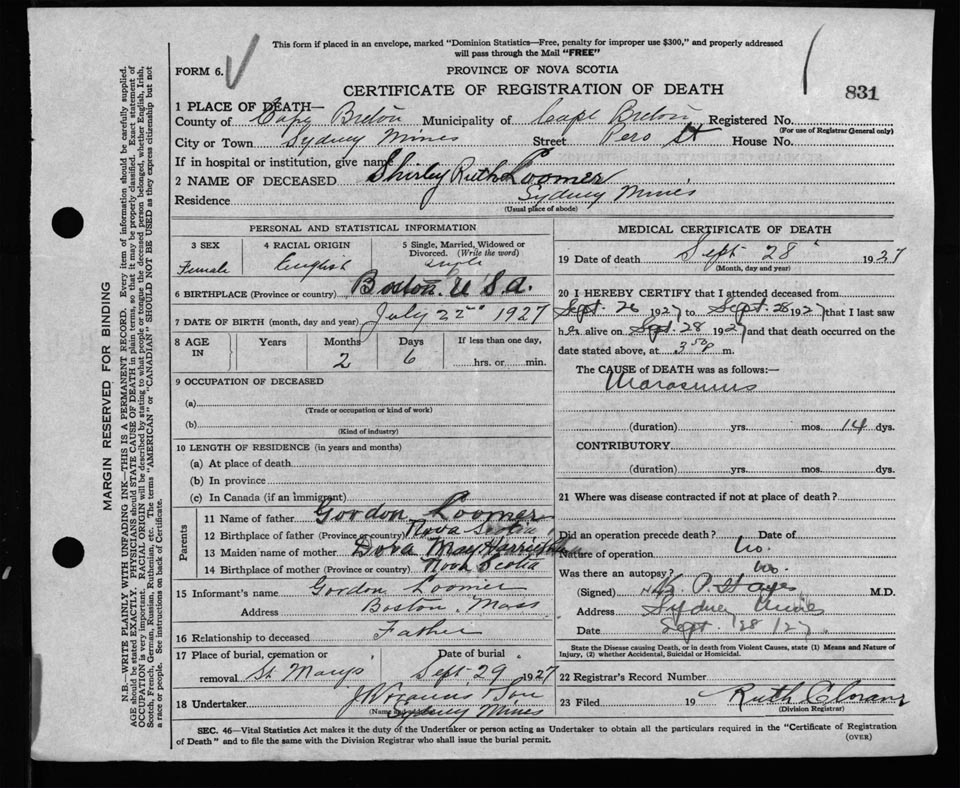 This form if placed in an envelope, marked "Dominion Statistics—Free, penalty for improper use $300," and properly addressed
will pass through the Mail "FREE"
FORM 6.
PROVINCE OF NOVA SCOTIA
CERTIFICATE OF REGISTRATION OF DEATH
831
1 PLACE OF DEATH—
County of Cape Breton Municipality of Cape Breton Registered No.
(For use of Registrar General only)
City or Town Sydney Mines Street Pero St House No.
If in hospital or institution, give name
2 NAME OF DECEASED Shirley Ruth Loomer
Residence Sydney Mines
(Usual place of abode)
PERSONAL AND STATISTICAL INFORMATION
3 SEX 4 RACIAL ORIGIN 5 Single, Married, Widowed or
Divorced. (Write the word)
Female English Single
6 BIRTHPLACE (Province or country) Boston. U.S.A.
7 DATE OF BIRTH (month, day and year) July 22nd 1927
8 AGE IN Years Months Days If less than one day,
2 6 hrs. or min.
9 OCCUPATION OF DECEASED
(a)
(Trade or occupation or kind of work)
(b)
(Kind of industry)
10 LENGTH OF RESIDENCE (in years and months)
(a) At place of death
(b) In province
(c) In Canada (if an immigrant)
Parents
11 Name of father Gordon Loomer
12 Birthplace of father (Province or country) Nova Scotia
13 Maiden name of mother Dora May
14 Birthplace of mother (Province or country) Nova Scotia
15 Informant's name Gordon Loomer
Address Boston, Mass
16 Relationship to deceased Father
17 Place of burial, cremation or Date of burial
removal St Marys Sept 29 1927
18 Undertaker & Son
(Name and address)
Sydney Mines
MEDICAL CERTIFICATE OF DEATH
19 Date of death Sept 28 1927
(Month, day and year)
20 I HEREBY CERTIFY that I attended deceased from
Sept. 26 1927 to Sept. 28 1927 that I last saw
her alive on Sept. 28 1927 and that death occurred on
date stated above, at 3 50 p m.
The CAUSE of DEATH was as follows:—
Marasmus
(duration) yrs. mos. 14 dys.
CONTRIBUTORY.
(duration) yrs. mos. dys.
21 Where was disease contracted if not at place of death?
Did an operation precede death? Date of
No.
Name of operation
Was there an autopsy? No.
(Signed) M.D.
Address Sydney Mines
Date Sept. 28/27
State the Disease causing Death, or in death from Violent Causes, state (1) Means and Nature of
Injury, (2) whether Accidental, Suicidal or Homicidal.
22 Registrar's Record Number
23 Filed 19 Ruth
(Division Registrar)
SEC. 46—Vital Statistics Act makes it the duty of the Undertaker or person acting as Undertaker to obtain all the particulars required in the "Certificate of Registration
of Death" and to file the same with the Division Registrar who shall issue the burial permit.
(OVER)
MARGIN RESERVED FOR BINDING
N.B.—WRITE PLAINLY WITH UNFADING INK—THIS IS A PERMANENT RECORD. Every item of information should be carefully supplied.
AGE should be stated EXACTLY. PHYSICIANS should STATE CAUSE OF DEATH in plain terms, so that it may be properly classified. Exact statement of
OCCUPATION is very important. RACIAL ORIGIN will be described by stating to what people or tongue the deceased person belonged, whether English, Irish,
Scotch, French, German, Russian, Ruthenian, etc. The terms "AMERICAN" or "CANADIAN" SHOULD NOT BE USED as they express citizenship but not
a race or people. See instructions on back of Certificate.